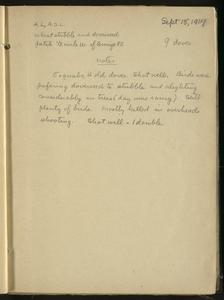 Sept 15, 1919.
A.L., A.S.L.
wheat stubble and doveweed
patch ½ mile W. of
9 doves
Notes
5 squabs, 4 old doves. Shot well. Birds were
prefering doveweed to stubble and alighting
considerably in trees (day was sunny). Still
plenty of birds. Mostly killed in overhead
shooting. Shot well - 1 double.